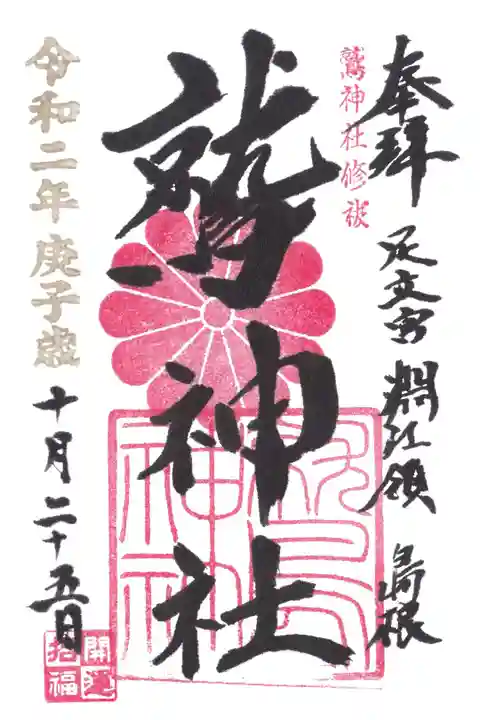 奉拝
足立宮
渕江領
島根
鷲神社修祓
鷲神社
鷲神社
令和二年庚子歳
十月二十五日
開運
招福